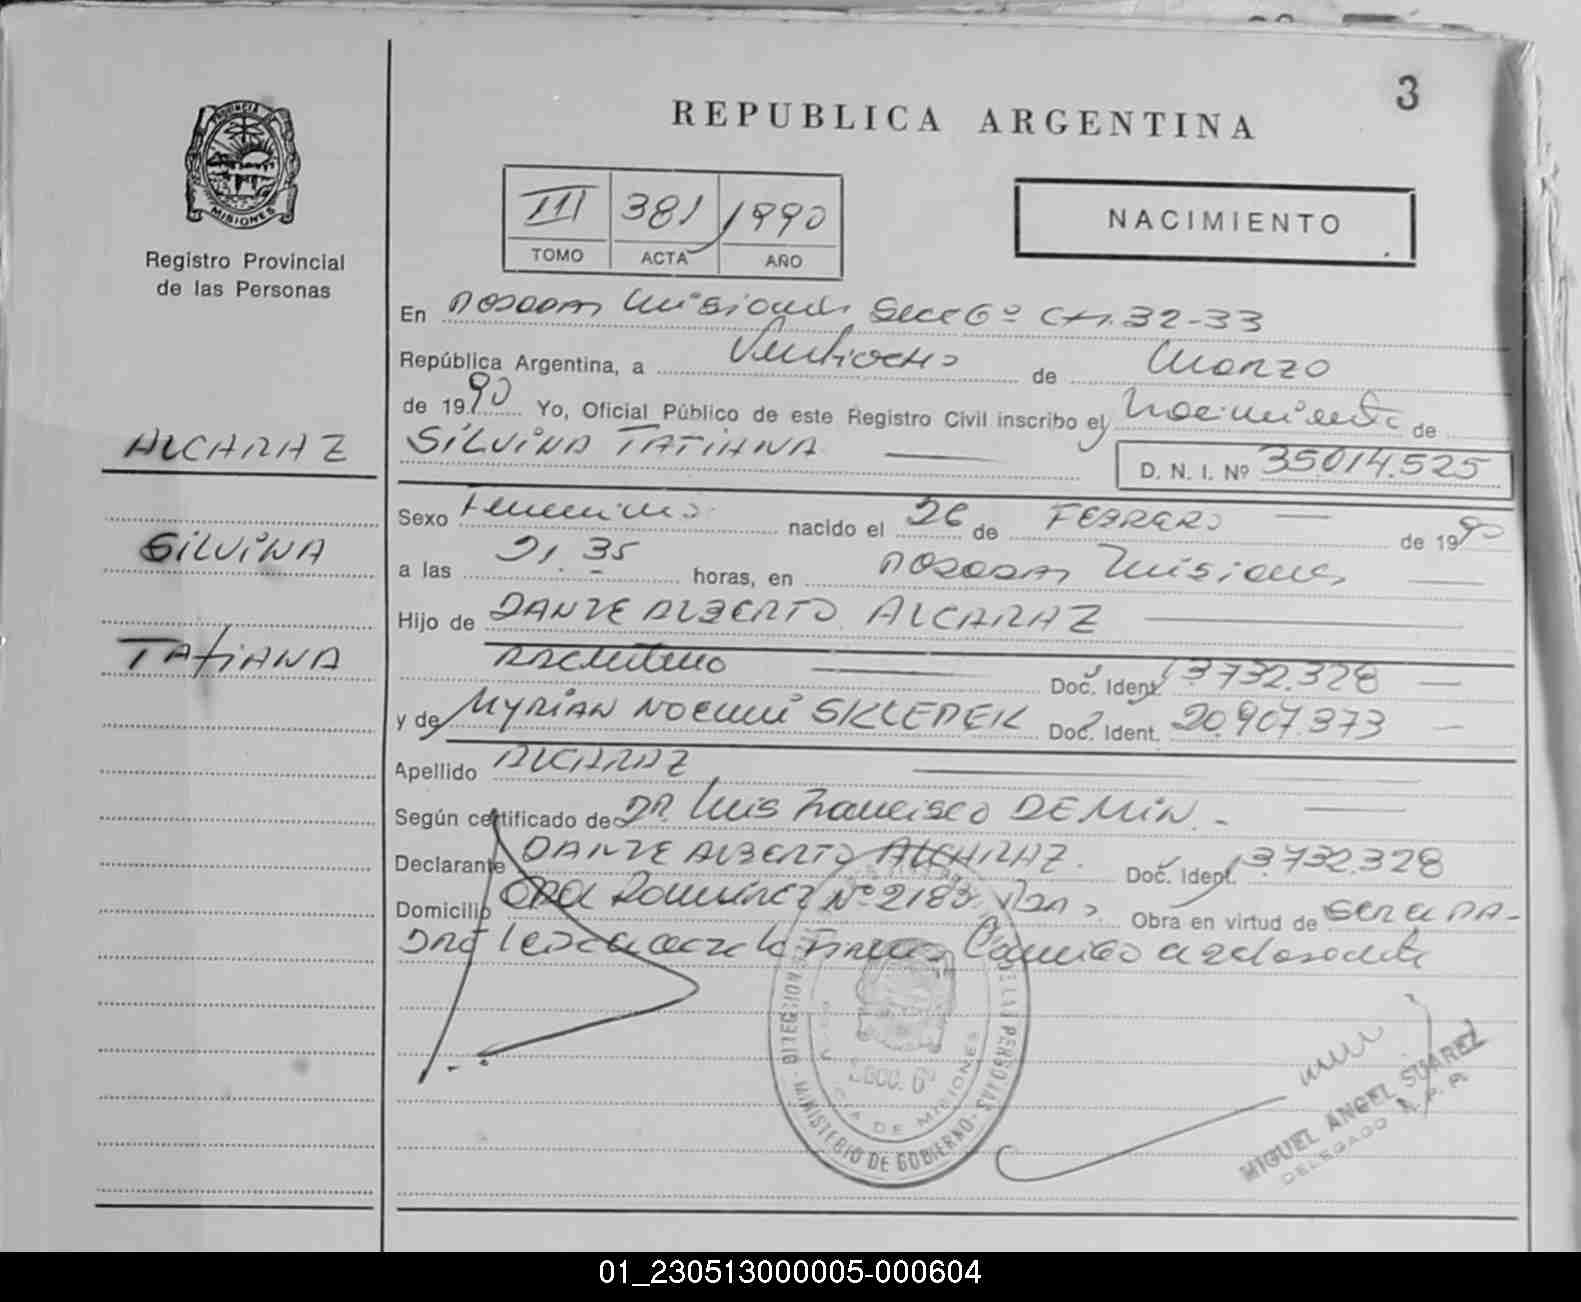 3
REPUBLICA ARGENTINA
PROVINCIA DE MISIONES
Registro Provincial
de las Personas
III 381 1990
TOMO ACTA AÑO
NACIMIENTO
En Posadas Misiones Secc 6º 32-33
República Argentina, a Veintiocho de Marzo
de 1990 Yo, Oficial Público de este Registro Civil inscribo el Nacimiento de
ALCARAZ
SILVINA TATIANA D. N. I. Nº 35.014.525
Sexo Femenino nacido el 26 de FEBRERO de 1990
SILVINA
a las 21.35 horas, en Posadas Misiones
Hijo de DANTE ALBERTO ALCARAZ
TATIANA
Argentino Doc. Ident. 13.732.328
y de MYRIAN NOEMI SKLEPEK Doc. Ident. 20.907.373
Apellido ALCARAZ
Según certificado de DR. Luis Francisco DEMIN.
Declarante DANTE ALBERTO ALCARAZ. Doc. Ident. 13.732.328
Domicilio Ramirez Nº 2183 Obra en virtud de ser el PA-
DRE
DIRECCION DE LAS PERSONAS
SECC. 6ª
PROVINCIA DE MISIONES
MINISTERIO DE GOBIERNO
MIGUEL ANGEL SUAREZ
DELEGADO R. P. P.
01_230513000005-000604